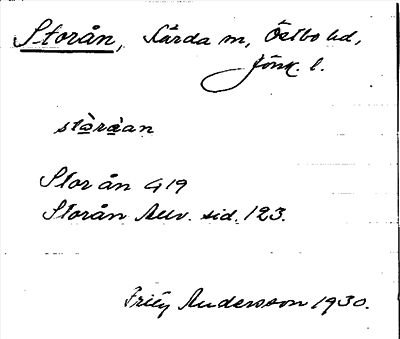 Storån, Kärda sn, Östbo hd,
Jönk. l.
stòràan
Stor ån G 19
Storån Allv. sid. 123.
Fritz Andersson 1930.